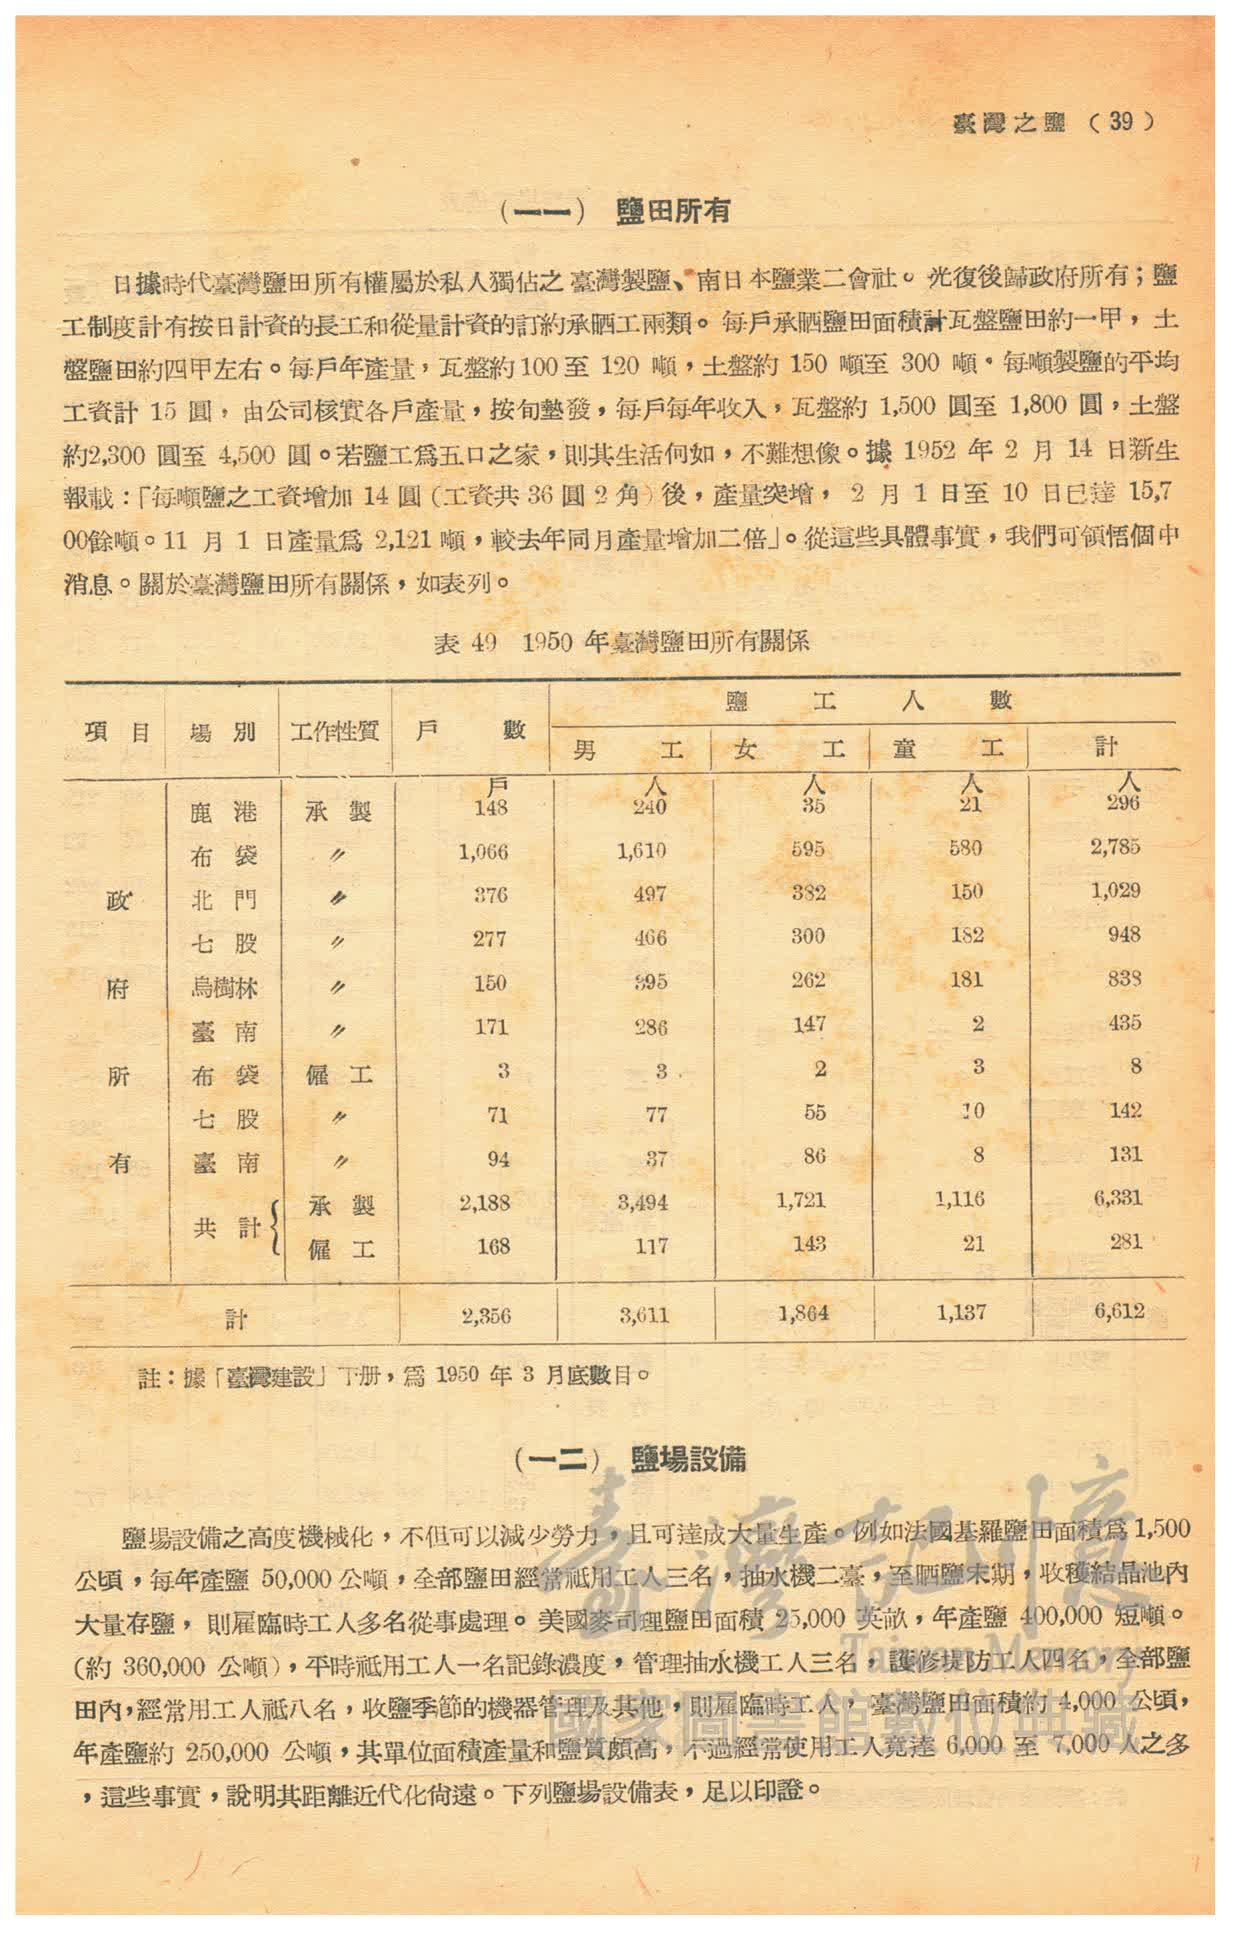 臺灣之鹽 ( 39 )
(一一) 鹽田所有
日據時代臺灣鹽田所有權屬於私人獨佔之臺灣製鹽、南日本鹽業二會社。光復後歸政府所有；鹽
工制度計有按日計資的長工和從量計資的訂約承晒工兩類。每戶承晒鹽田面積計瓦盤鹽田約一甲，土
盤鹽田約四甲左右。每戶年產量，瓦盤約100至 120 噸，土盤約 150 噸至 300 噸。每噸製鹽的平均
工資計 15 圓，由公司核實各戶產量，按旬墊發，每戶每年收入，瓦盤約 1,500 圓至 1,800 圓，土盤
約2,300 圓至 4,500 圓。若鹽工爲五口之家，則其生活何如，不難想像。據 1952 年 2 月 14 日新生
報載：「每噸鹽之工資增加 14 圓（工資共 36 圓 2 角）後，產量突增， 2 月 1 日至 10 日已達 15,7
00餘噸。11 月 1 日產量爲 2,121 噸，較去年同月產量增加二倍」。從這些具體事實，我們可領悟個中
消息。關於臺灣鹽田所有關係，如表列。
表 49 1950 年臺灣鹽田所有關係
項目 場別 工作性質 戶數 鹽工人數
男工 女工 童工 計
戶 人 人 人 人
鹿港 承製 148 240 35 21 296
布袋 〃 1,066 1,610 595 580 2,785
政 北門 〃 376 497 382 150 1,029
七股 〃 277 466 300 182 948
府 烏樹林 〃 150 395 262 181 838
臺南 〃 171 286 147 2 435
所 布袋 僱工 3 3 2 3 8
七股 〃 71 77 55 10 142
有 臺南 〃 94 37 86 8 131
共計 承製 2,188 3,494 1,721 1,116 6,331
僱工 168 117 143 21 281
計 2,356 3,611 1,864 1,137 6,612
註：據「臺灣建設」下册，爲 1950 年 3 月底數目。
(一二) 鹽場設備
鹽場設備之高度機械化，不但可以減少勞力，且可達成大量生產。例如法國基羅鹽田面積爲 1,500
公頃，每年產鹽 50,000 公噸，全部鹽田經常祗用工人三名，抽水機二臺，至晒鹽末期，收穫結晶池內
大量存鹽，則雇臨時工人多名從事處理。美國麥司理鹽田面積 25,000 英畝，年產鹽 400,000 短噸。
(約 360,000 公噸)，平時祗用工人一名記錄濃度，管理抽水機工人三名，護修堤防工人四名，全部鹽
田內，經常用工人祗八名，收鹽季節的機器管理及其他，則雇臨時工人， 臺灣鹽田面積約 4,000 公頃，
年產鹽約 250,000 公噸，其單位面積產量和鹽質頗高，不過經常使用工人竟達 6,000 至 7,000 人之多
，這些事實，說明其距離近代化尙遠。下列鹽場設備表，足以印證。
臺灣記憶
Taiwan Memory
國家圖書館數位典藏